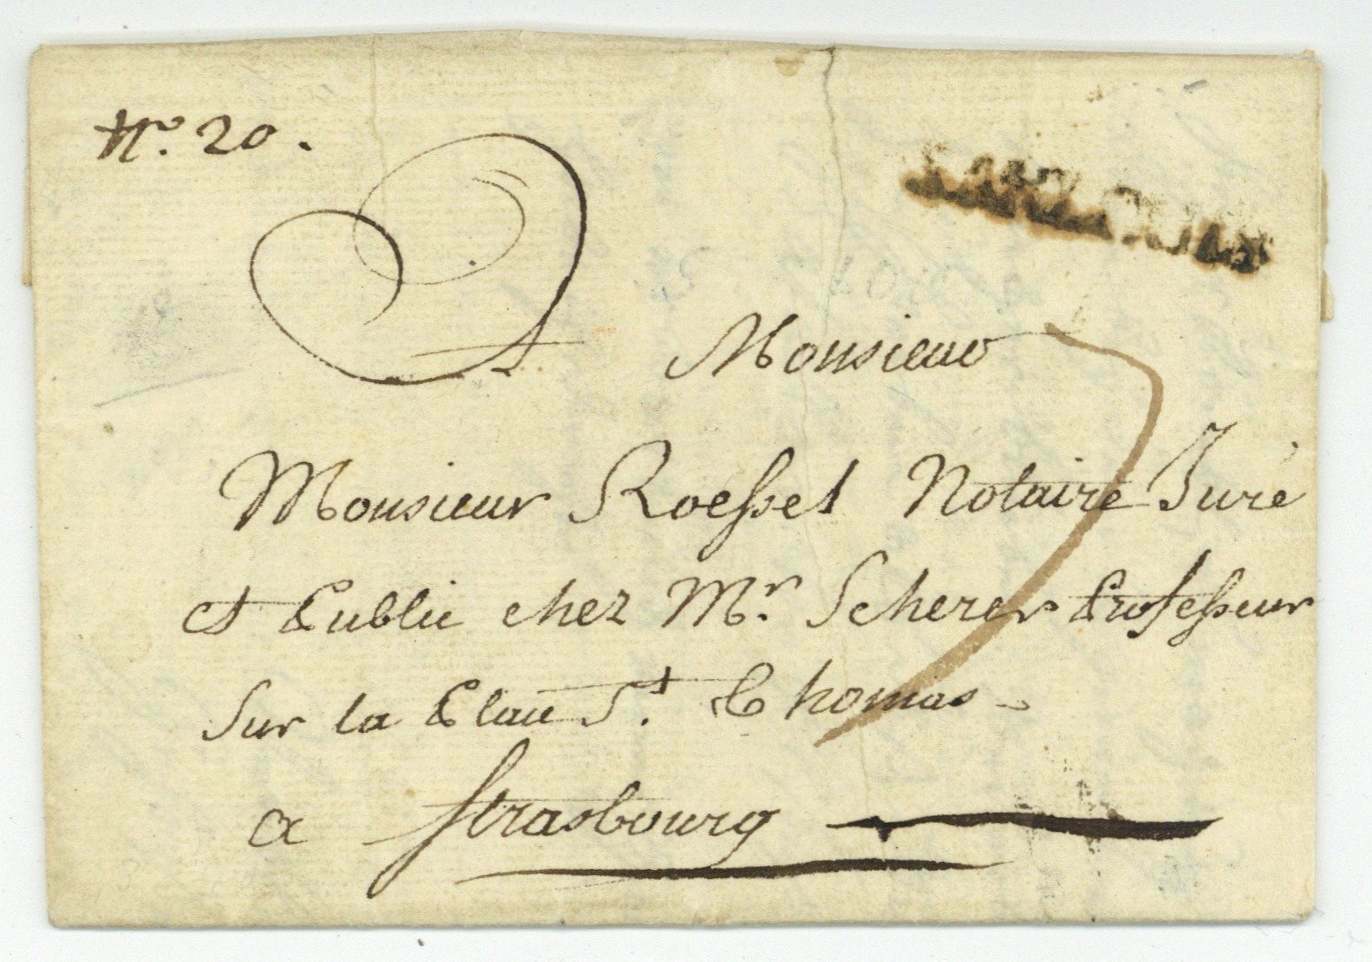 No. 20.
A
Monsieur
Monsieur Roessel Notaire Juré
et Public chez Mr. Scherer Professeur
Sur la Place St. Thomas
a Strasbourg